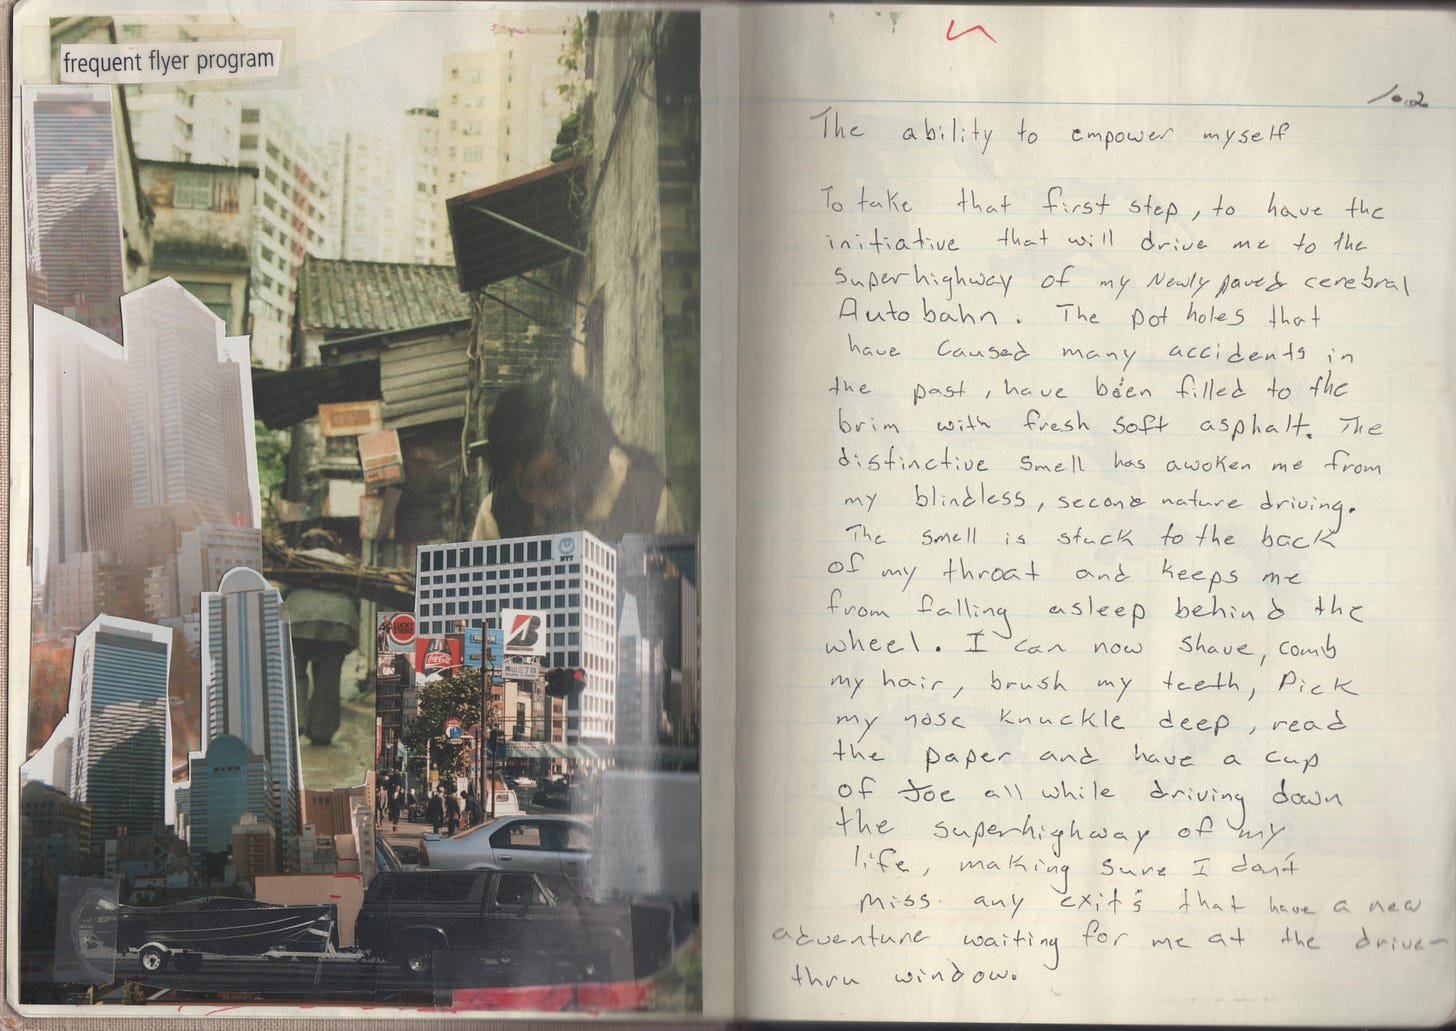 frequent flyer program
NTT
LUCKY STRIKE
Coca-Cola
B
BRIDGESTONE
青山三丁目
10.2
The ability to empower myself
To take that first step, to have the
initiative that will drive me to the
superhighway of my Newly paved cerebral
Autobahn. The pot holes that
have caused many accidents in
the past, have been filled to the
brim with fresh soft asphalt. The
distinctive smell has awoken me from
my blindless, second nature driving.
The smell is stuck to the back
of my throat and keeps me
from falling asleep behind the
wheel. I can now shave, comb
my hair, brush my teeth, Pick
my nose knuckle deep, read
the paper and have a cup
of Joe all while driving down
the superhighway of my
life, making sure I don't
miss any exit's that have a new
adventure waiting for me at the drive-
thru window.